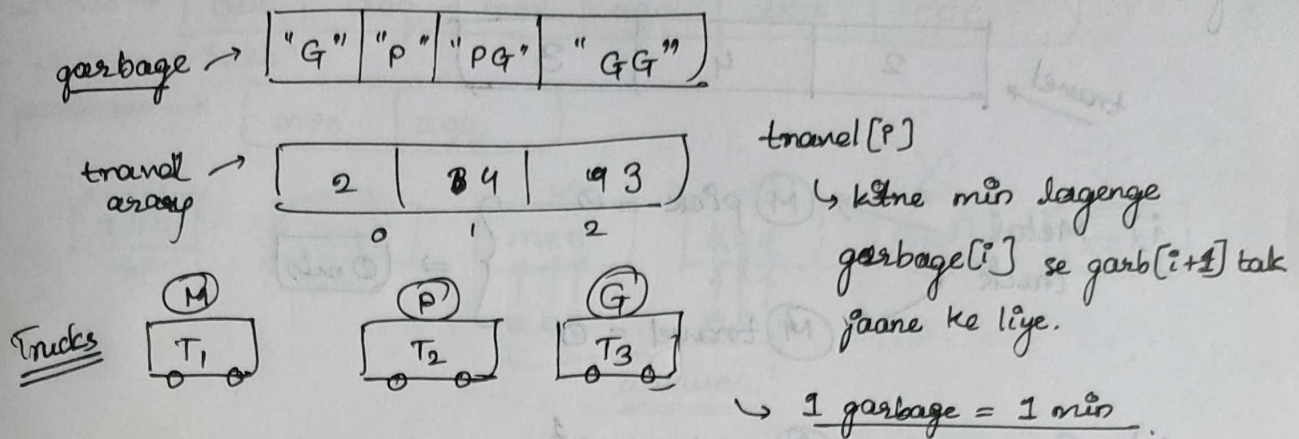 garbage → "G" "P" "PG" "GG"
travel array → 2 4 3
0 1 2
travel[i]
↳ kitne min lagenge
garbage[i] se garb[i+1] tak
jaane ke liye.
Trucks
M P G
T1 T2 T3
↳ 1 garbage = 1 min.